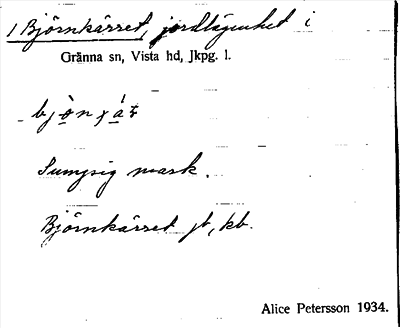 1 Björnkärret, jordlägenhet i
Gränna sn, Vista hd, Jkpg. l.
Sumpig mark.
Björnkärret jb, kb.
Alice Petersson 1934.